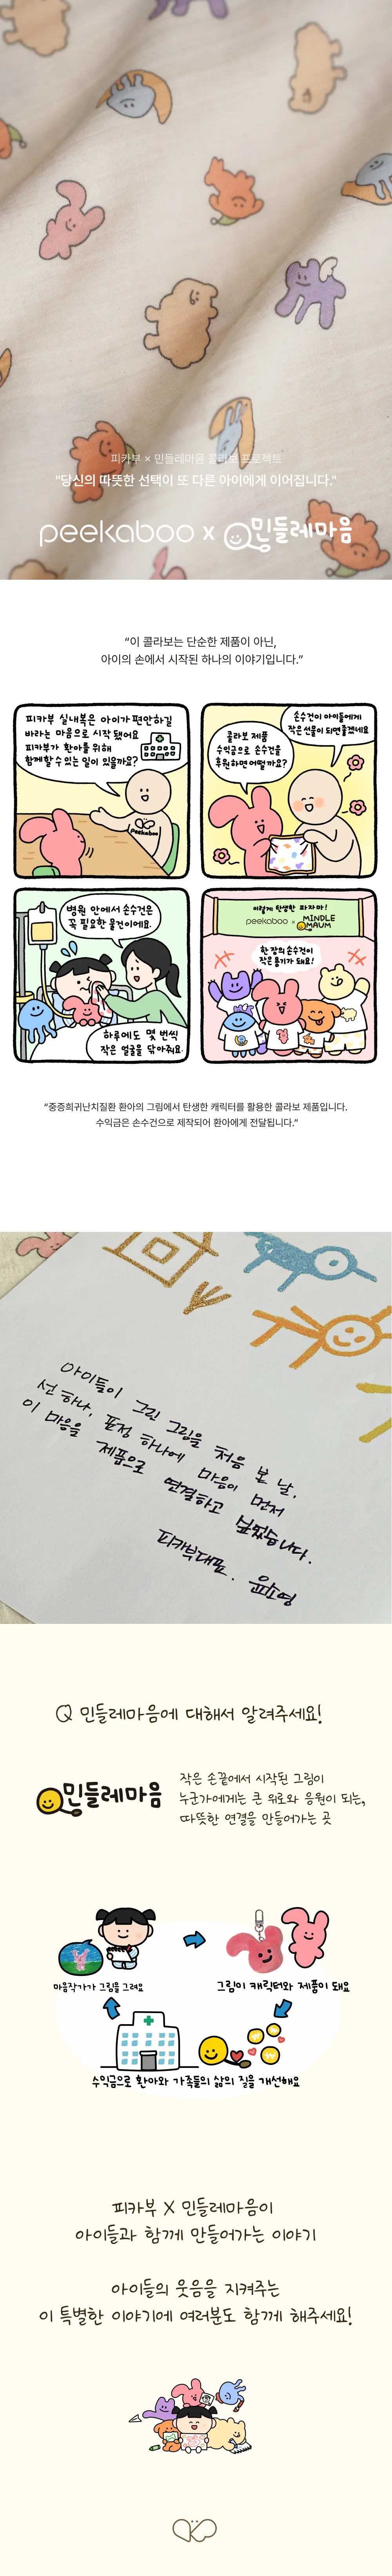 피카부 × 민들레마음 콜라보 프로젝트
"당신의 따뜻한 선택이 또 다른 아이에게 이어집니다."
peekaboo x 민들레마음
“이 콜라보는 단순한 제품이 아닌,
아이의 손에서 시작된 하나의 이야기입니다.”
피카부 실내복은 아이가 편안하길
바라는 마음으로 시작 됐어요
피카부가 환아를 위해
함께할 수 있는 일이 있을까요?
peekaboo
손수건이 아이들에게
작은선물이 되면좋겠네요
콜라보 제품
수익금으로 손수건을
후원하면어떨까요?
병원 안에서 손수건은
꼭 필요한 물건이에요.
하루에도 몇 번씩
작은 얼굴을 닦아줘요
이렇게 탄생한 파자마!
peekaboo × MINDLE MAUM
한 장의 손수건이
작은용기가 돼요!
“중증희귀난치질환 환아의 그림에서 탄생한 캐릭터를 활용한 콜라보 제품입니다.
수익금은 손수건으로 제작되어 환아에게 전달됩니다.”
아이들이 그린 그림을 처음 본 날,
선 하나, 표정 하나에 마음이 먼저
이 마음을 제품으로 연결하고 싶었습니다.
피카부대표. 윤소영
Q 민들레마음에 대해서 알려주세요!
민들레마음
작은 손끝에서 시작된 그림이
누군가에게는 큰 위로와 응원이 되는,
따뜻한 연결을 만들어가는 곳
마음작가가 그림을 그려요
그림이 캐릭터와 제품이 돼요
수익금으로 환아와 가족들의 삶의 질을 개선해요
피카부 X 민들레마음이
아이들과 함께 만들어가는 이야기
아이들의 웃음을 지켜주는
이 특별한 이야기에 여러분도 함께 해주세요!